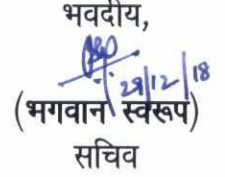 भवदीय,
29/12/18
(भगवान स्वरूप)
सचिव